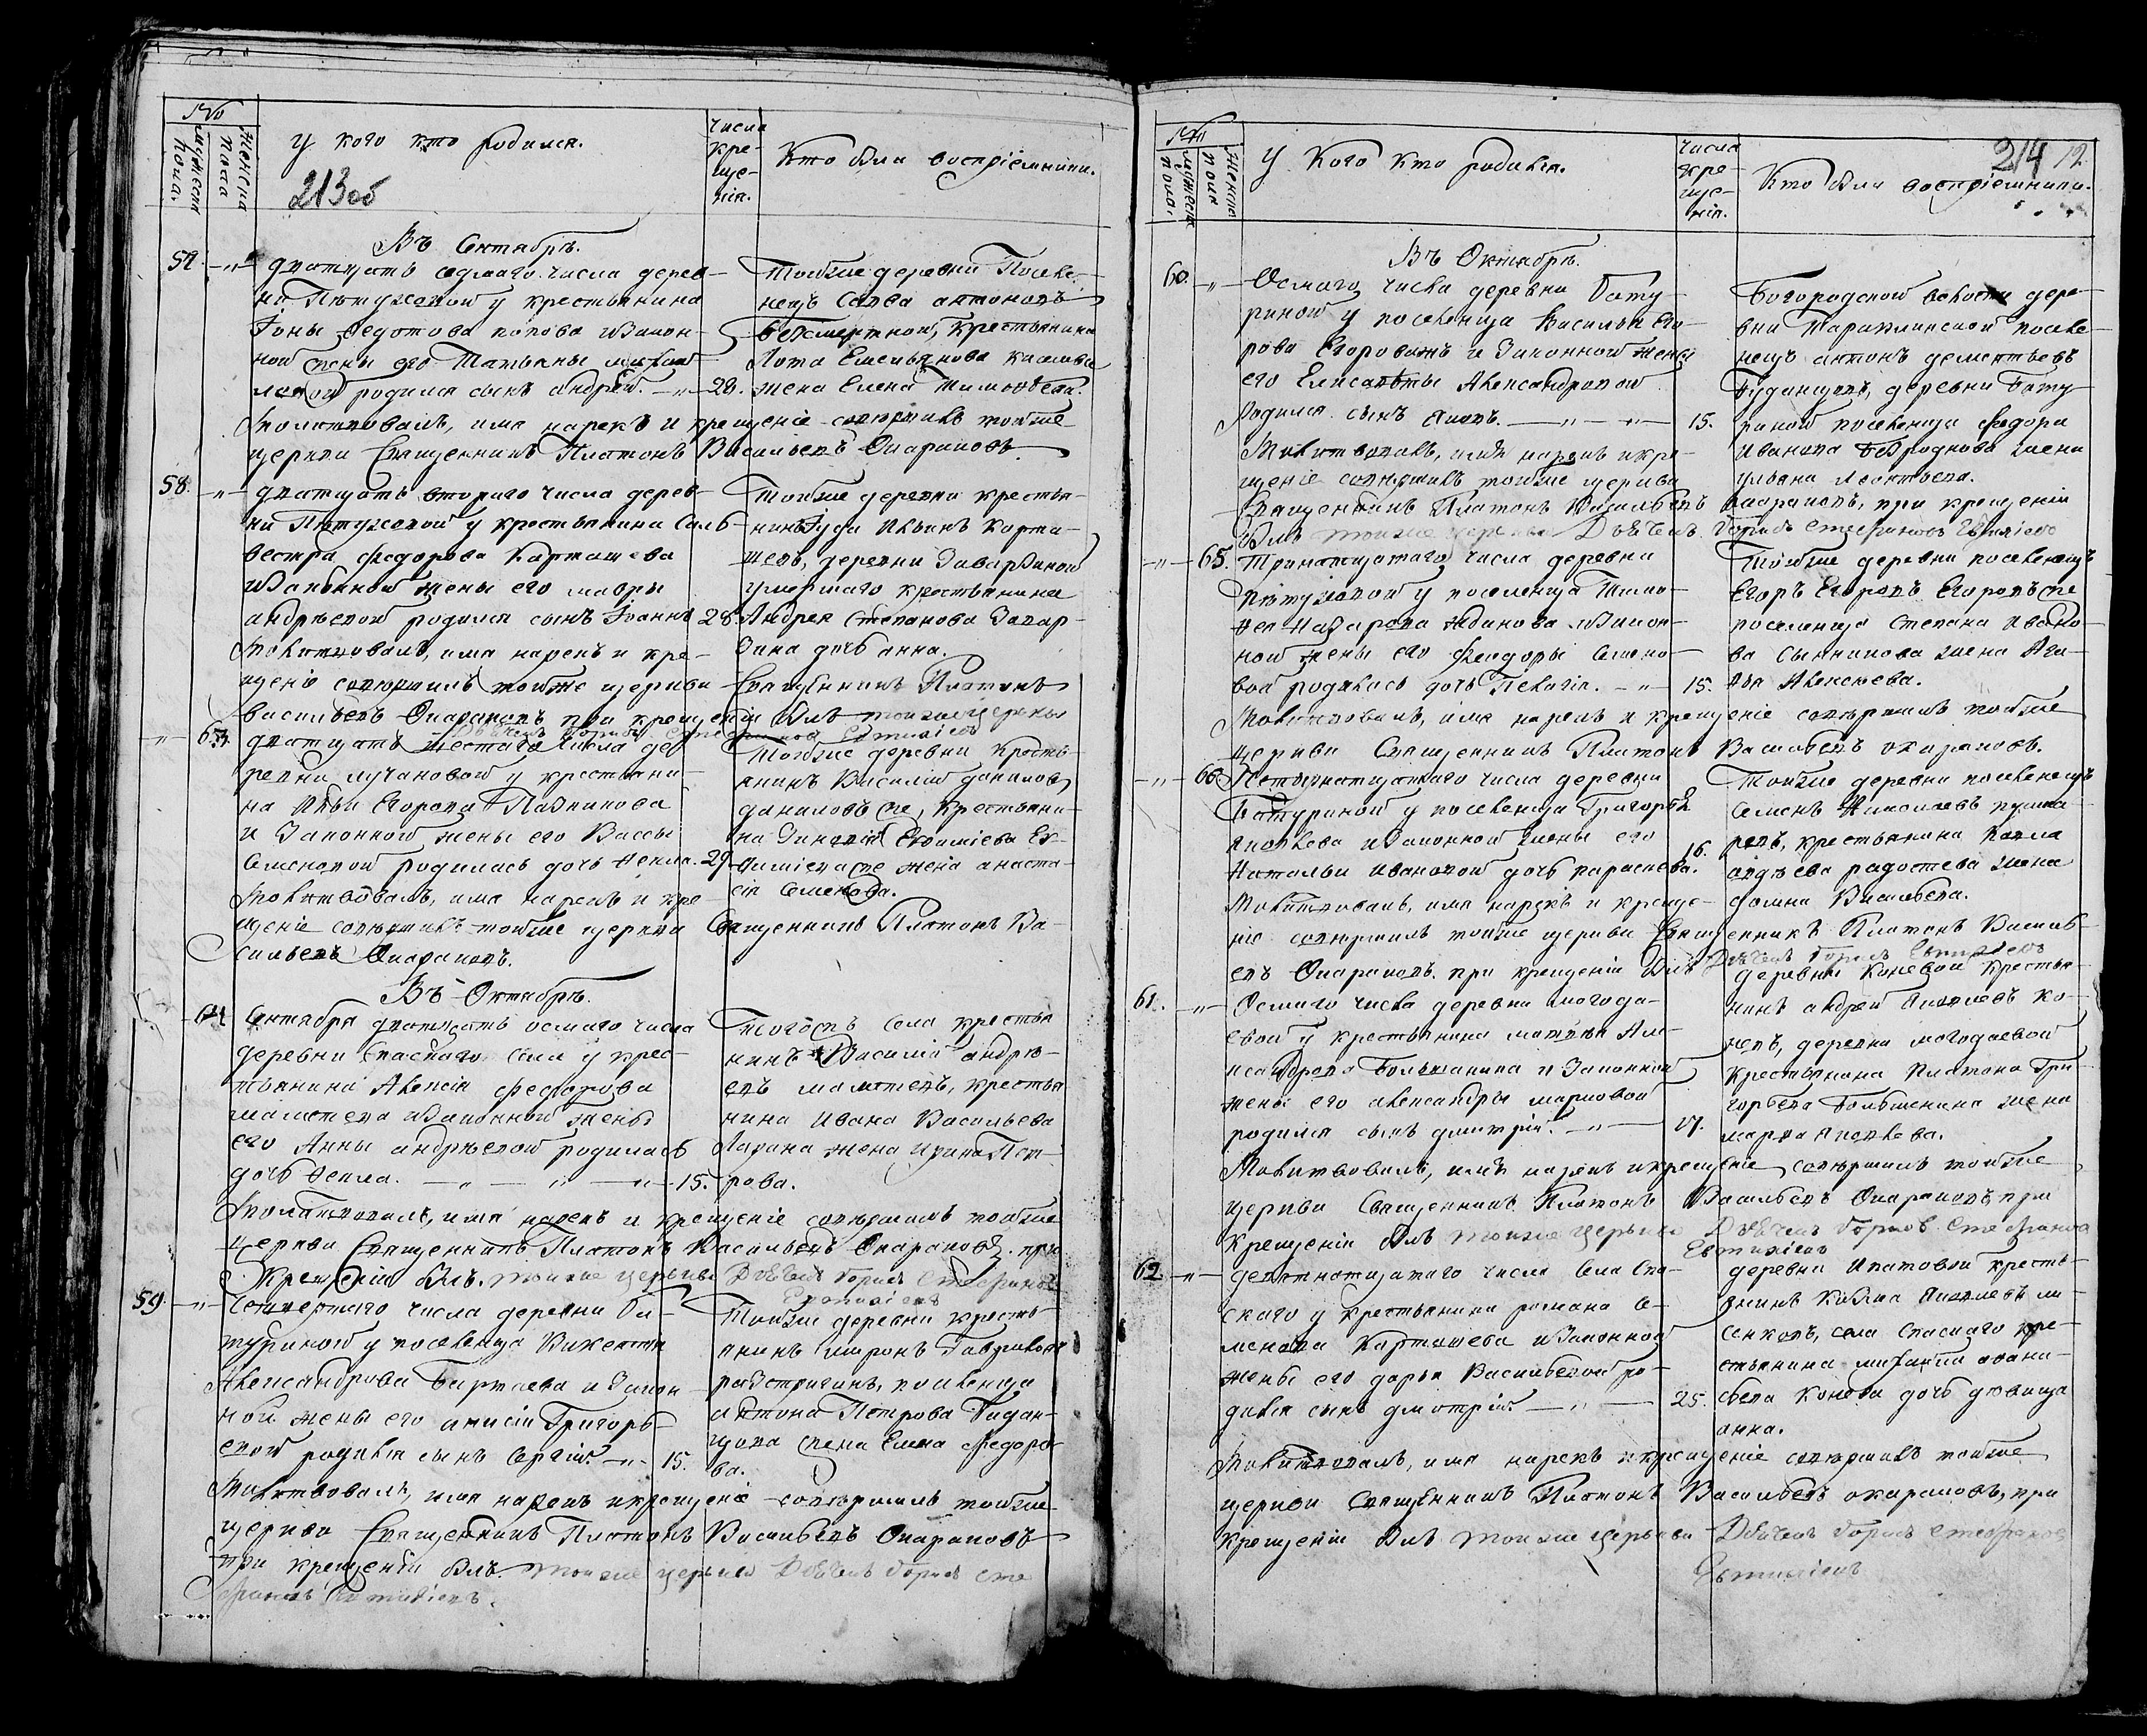 №
Мужеска пола.
Женска пола
У кого кто родился.
числа кре-
ще-
нія.
Кто были воспріемники.
213об
Въ Сентябрѣ.
57. -„- дватцать седмаго числа дерев-
ни Пѣтуховой у крестьянина
Іоны Ѳедотова попова и закон-
ной жены его Татьяны
родился сынъ андрей. -„- 28.
Тойже деревни Поселе-
нецъ Савва антоновъ
безсмертной, крестьянина
Лота Емельянова
жена Елена Тимофеева.
Молитвовалъ, имя нарекъ и крещеніе совершилъ тойже
церкви Священникъ Платонъ Васильевъ Опарановъ.
58. -„- дватцать втораго числа дерев-
ни Пѣтуховой у крестьянина Силь-
вестра Федорова Карташева
и законной жены его мавры
андрѣевой родился сынъ Іоаннъ 28.
Тойже деревни крестья-
нинъ Іуда Ильинъ Карта-
шевъ, деревни Заварзиной
умершаго крестьянина
Андрея Степанова Завар-
зина дочь анна.
Молитвовалъ, имя нарекъ и кре-
щеніе совершилъ тойже церкви Священникъ Платонъ
Васильевъ Опарановъ при крещеніи былъ тойже церкви
Дьячекъ Борисъ Стефановъ Евтихіевъ
-„- 63. дватцать шестаго числа де-
ревни лучановой у крестьяни-
на Ильи Егорова
и Законной жены его Вассы
Семеновой родилась дочь Ѳекла. 29.
Тойже деревни кресть-
янинъ Василій даниловъ
даниловъ же, крестьяни-
на Зиновія Евфиміева Ев-
фиміева же жена анаста-
сія Семенова.
Молитвовалъ, имя нарекъ и кре-
щеніе совершилъ тойже церкви Священникъ Платонъ Ва-
сильевъ Опарановъ.
Въ Октябрѣ.
-64. Сентября дватцать осмаго числа
деревни Спаскаго села у крес-
тьянина Алексія Федорова
маметева и законной жены
его Анны андрѣевой родилась
дочь Ѳекла. -„- -„- -„- 15.
Тогожъ села крестья
нинъ Василій андрѣ-
евъ маметевъ, крестья
нина Ивана Васильева
Ларина жена Ирина Пет-
рова.
Молитвовалъ, имя нарекъ и крещеніе совершилъ тойже
церкви Священникъ Платонъ Васильевъ Опарановъ. при
крещеніи былъ. тойже церкви Дьячекъ Борисъ Стефановъ
Евтихіевъ
59. -„- Четвертаго числа деревни Ба-
туриной у поселенца Викентія
Александрова Биржаева и закон-
ной жены его анисіи Григорь-
евой родился сынъ Сергій. -„- 15.
Тойже деревни кресть-
янинъ миронъ Гавриловъ
разстригинъ, поселенца
антона Петрова Будан-
цова жена Елена Федоро-
ва.
Молитвовалъ, имя нарекъ и крещеніе совершилъ тойже
церкви Священникъ Платонъ Васильевъ Опарановъ
при крещеніи былъ. тойже церкви Дьячекъ Борисъ Сте
фановъ Евтихіевъ.
№
Мужеска пола.
Женска пола
У кого кто родился.
числа
кре-
ще-
нія.
Кто были воспріемники.
214 12.
Въ Октябрѣ.
60. -„- Осмаго числа деревни Бату-
риной у поселенца Василья Его-
рова Егороважъ и Законной жены
его Елисаветы Александровой
родился сынъ Яковъ. -„- -„- 15.
Богородской волости дере-
вни Тараклинской поселе-
нецъ антонъ дементьевъ
Буданцовъ, деревни Бату-
риной поселенца федора
Иванова Безроднова жена
Ульяна Леонтьева.
Молитвовалъ, имя нарекъ и кре-
щеніе совершилъ тойже церкви
Священникъ Платонъ Васильевъ Опарановъ, при крещеніи
былъ тойже церкви Дьячекъ Борисъ Стефановъ Евтихіевъ
-„- 65. Тринатцатаго числа деревни
Пѣтуховой у поселенца Тимо-
фея Назарова Жданова и закон-
ной жены его Феодоры Семено-
вой родилась дочь Пелагія. -„- 15.
Тойже деревни поселенецъ
Егоръ Егоровъ Егоровъ же
поселенца Степана Ивано-
ва жена Ага-
фья Алексѣева.
Молитвовалъ, имя нарекъ и крещеніе совершилъ тойже
церкви Священникъ Платонъ Васильевъ Опарановъ.
-„- 66. Пятнатцатаго числа деревни
Батуриной у поселенца Григорья
Яковлева и законной жены его
Натальи Ивановой дочь параскева. 16.
Тойже деревни поселенецъ
Семенъ Николаевъ пушка-
ревъ, крестьянина Павла
авдѣева радостева жена
фоміна Васильева.
Молитвовалъ, имя нарекъ и креще-
ніе совершилъ тойже церкви Священникъ Платонъ Василь-
евъ Опарановъ. при крещеніи былъ Дьячекъ Борисъ Евтихіевъ
61. -„- Осмаго числа деревни могода-
евой у крестьянина матвѣя Але-
ксандрова Большанина и Законной
жены его александры марковой
родился сынъ дмитрій. -„- 17.
деревни Коневой крестья-
нинъ андрей Яковлевъ Ко-
невъ, деревни могодаевой
крестьянина Платона Гри-
горьева Большенина жена
марѳа Яковлева.
Молитвовалъ, имя нарекъ и крещеніе совершилъ тойже
церкви Священникъ Платонъ Васильевъ Опарановъ при
крещеніи былъ тойже церкви Дьячекъ Борисъ Стефановъ
Евтихіевъ
62. -„- девятнатцатаго числа села Спа-
скаго у крестьянина романа Се-
менова Карташева и Законной
жены его дарьи Васильевой ро-
дился сынъ дмитрій. -„- 25.
деревни Ипатовой кресть-
янинъ Козма Яковлевъ ли-
сенковъ, села Спаскаго кре-
стьянина михайла афана-
сьева Конева дочь дѣвица
анна.
Молитвовалъ, имя нарекъ и крещеніе совершилъ тойже
церкви Священникъ Платонъ Васильевъ Опарановъ, при
крещеніи былъ тойже церкви Дьячекъ Борисъ Стефановъ
Евтихіевъ